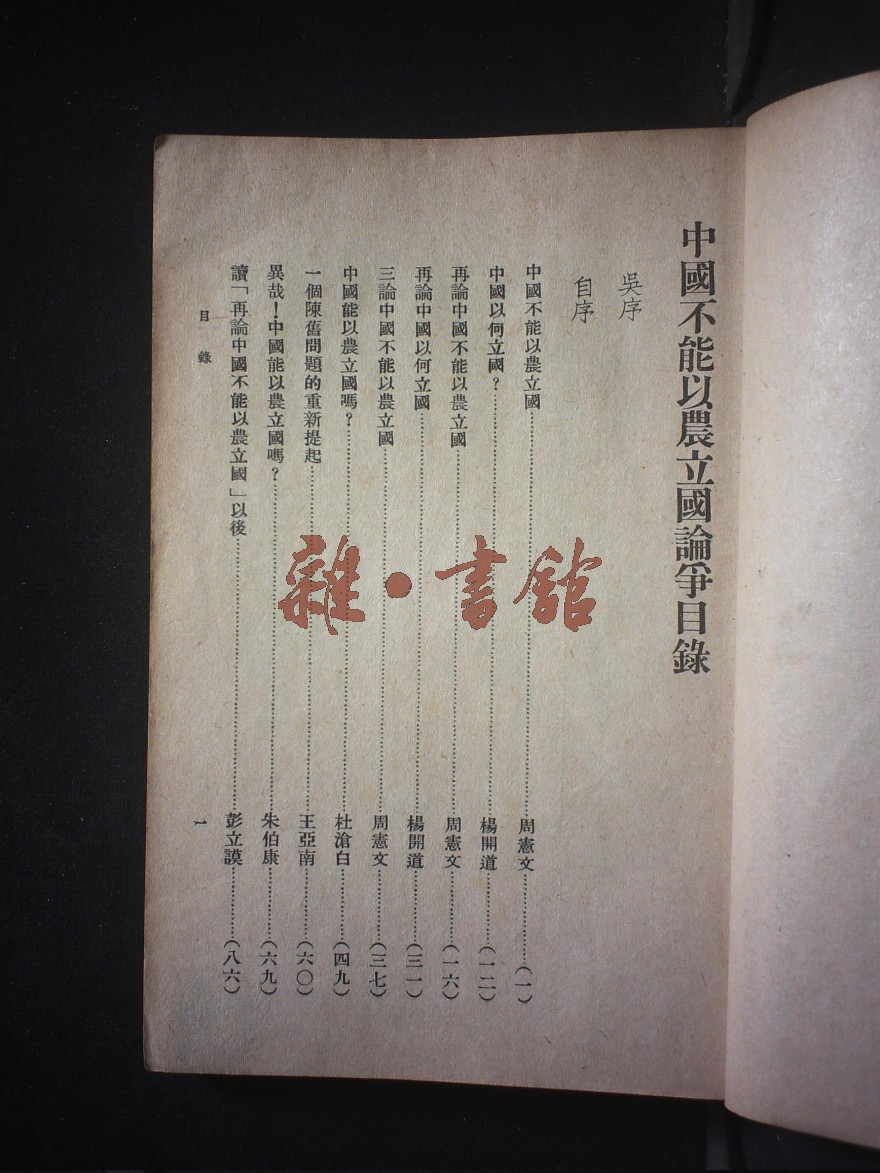 中國不能以農立國論爭目錄
吳序
自序
中國不能以農立國……周憲文……(一)
中國以何立國？……楊開道……(一二)
再論中國不能以農立國……周憲文……(一六)
再論中國以何立國……楊開道……(三一)
三論中國不能以農立國……周憲文……(三七)
中國能以農立國嗎？……杜滄白……(四九)
一個陳舊問題的重新提起……王亞南……(六〇)
異哉！中國能以農立國嗎？……朱伯康……(六九)
讀「再論中國不能以農立國」以後……彭立謨……(八六)
目錄
一
雜·書館